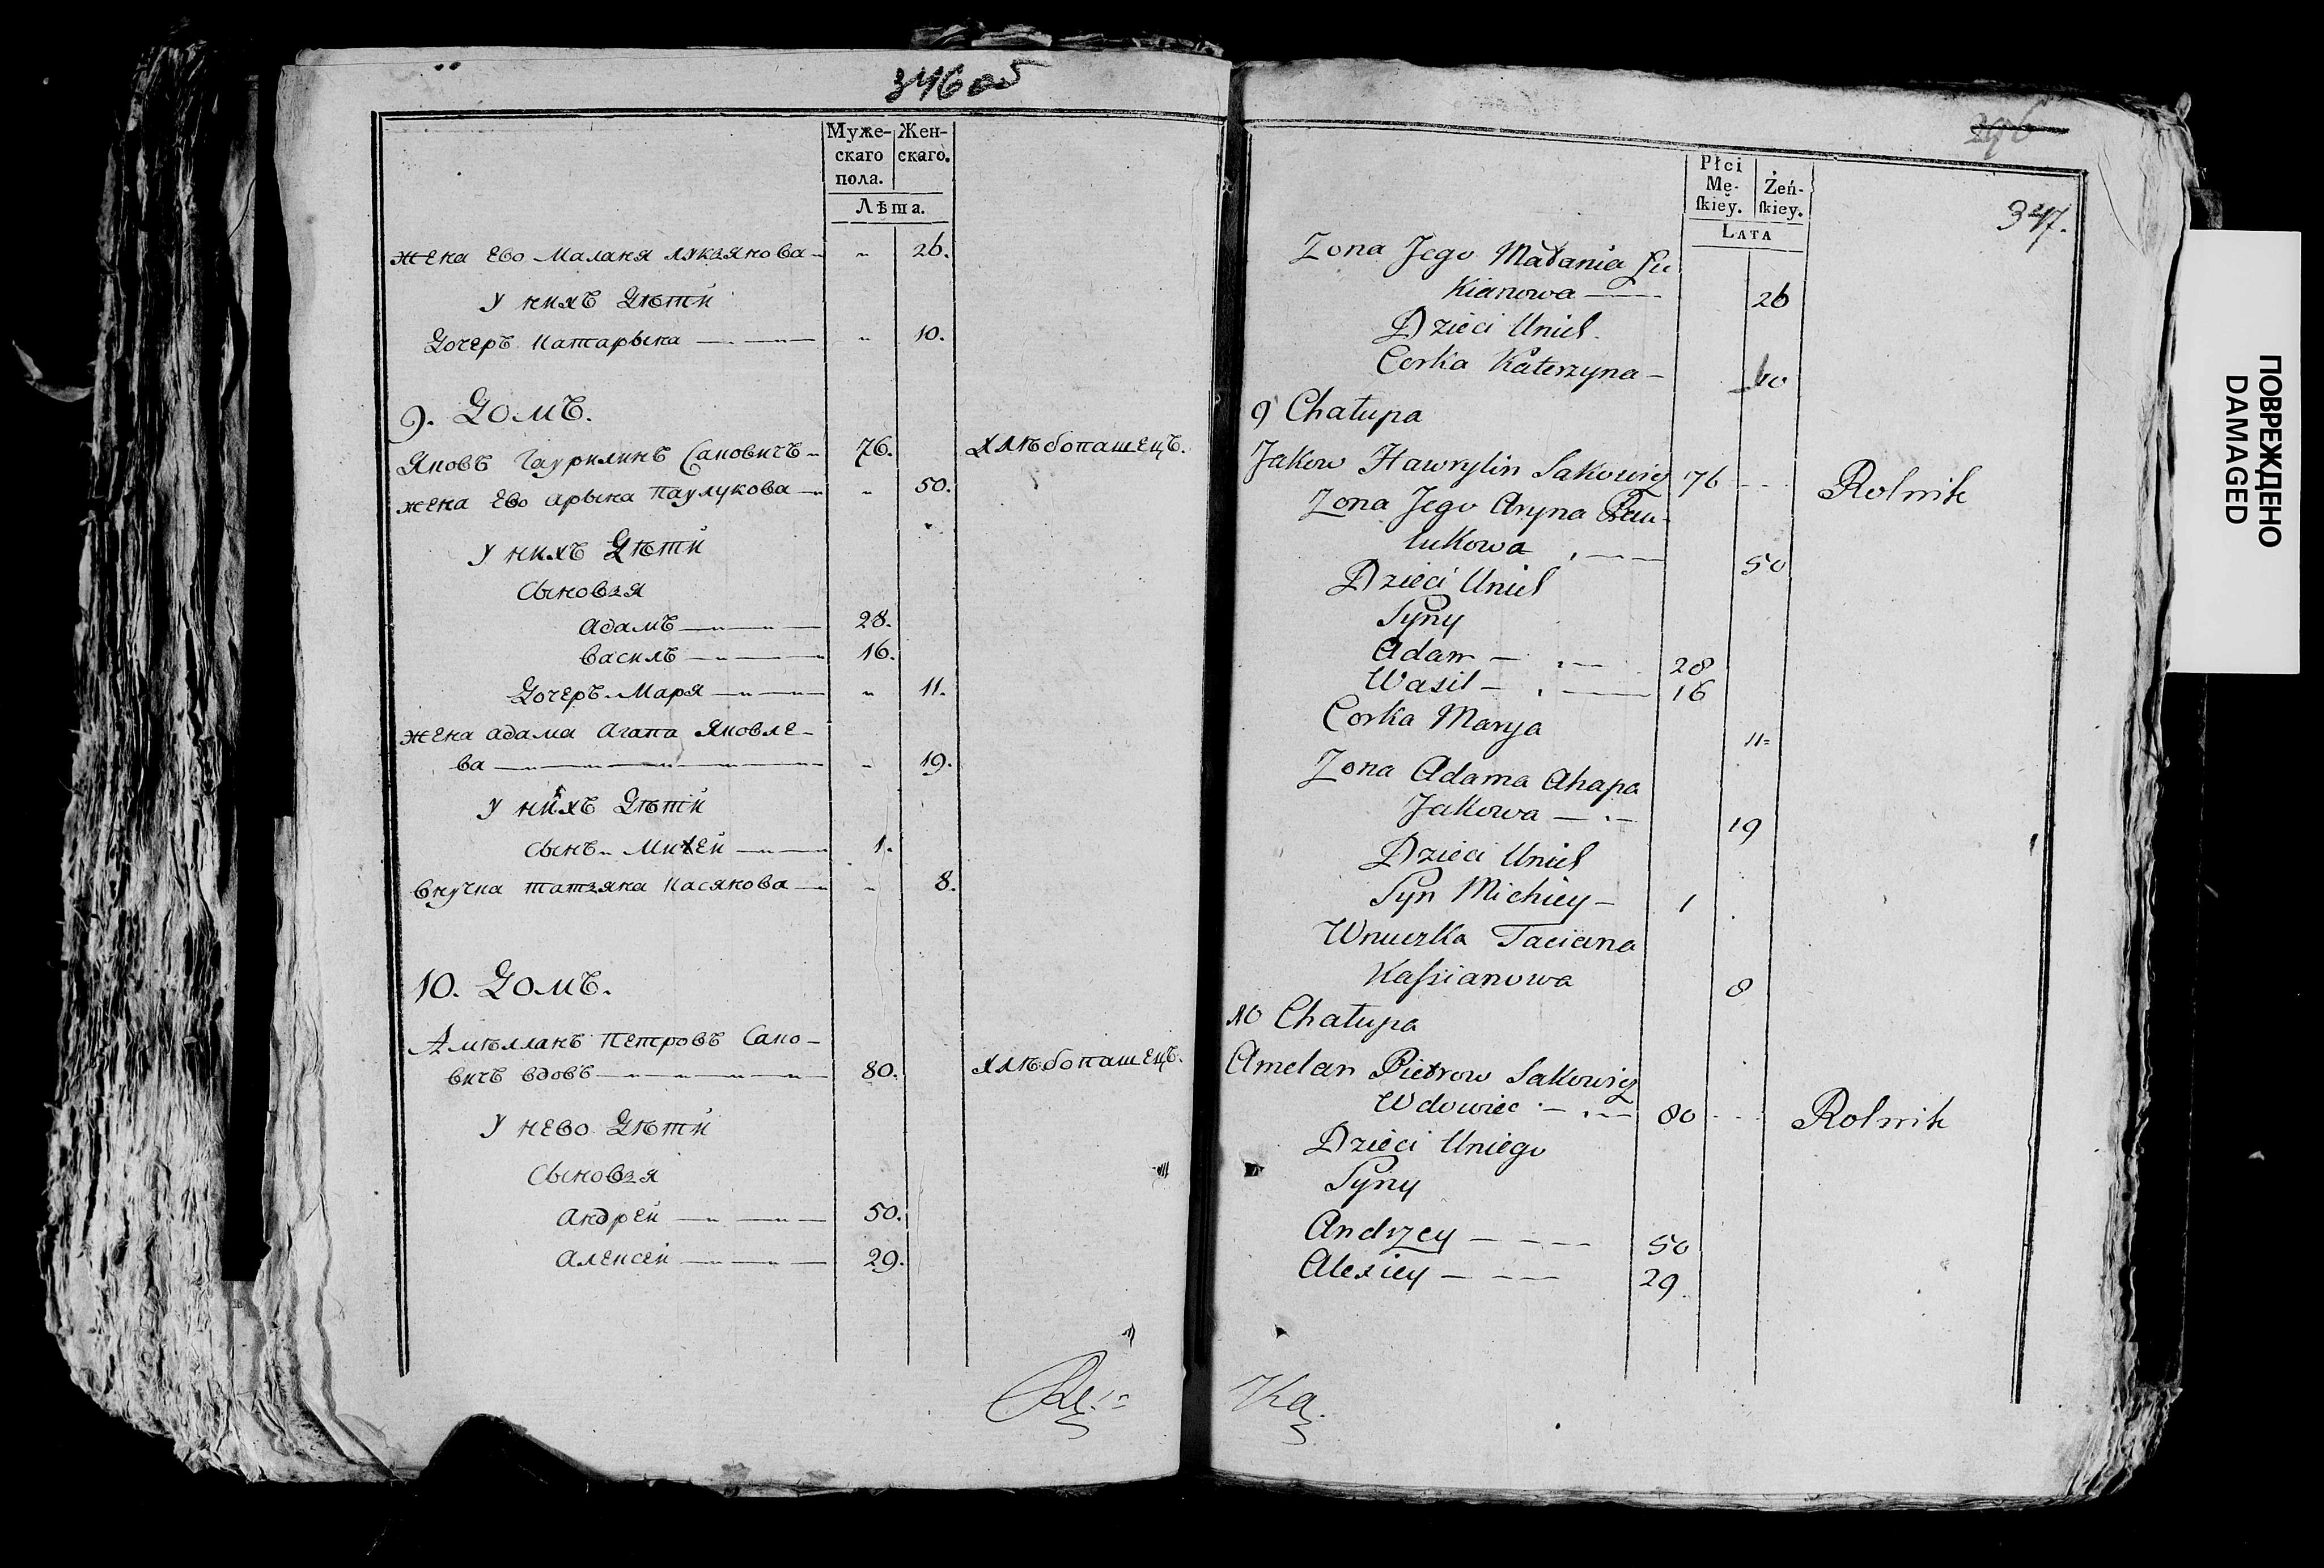 346 об
Муже-
скаго
пола.
Жен-
скаго.
Лѣта.
жена ево Маланя лукзянова
„ 26.
У нихъ Дѣти
Дочеръ Катарына
„ 10.
9. Домъ.
Яковъ Гаурилинъ Саковичъ
76.
хлѣбопашецъ.
жена ево арына паулукова
„ 50.
У нихъ Дѣти
Сыновзя
адамъ
28.
василъ
16.
Дочеръ Маря
„ 11.
жена адама агапа яковле-
ва
„ 19.
У нихъ Дѣти
сынъ Михей
1.
внучка татзяна касянова
„ 8.
10. Домъ.
Амѣлланъ петровъ Сако-
вичъ вдовъ
80.
хлѣбопашецъ.
У нево Дѣти
Сыновзя
андрей
50.
алексей
29.
296
347.
Płci
Mę-
ſkiey.
Żeń-
ſkiey.
Lata
Zona Jego Małania Łu
kianowa
26
Dzieci Unich
Corka Katerzyna
10
9 Chałupa
Jakow Hawrylin Sakowicz
76
Rolnik
Zona Jego Aryna Pau-
lukowa
50
Dzieci Unich
Syny
Adam
28
Wasil
16
Corka Marya
11
Zona Adama Ahapa
Jakowa
19
Dzieci Unich
Syn Michiey
1
Wnuczka Taciana
Kaſsianowa
8
10 Chałupa
Amelan Pietrow Sakowicz
Wdowiec
80
Rolnik
Dzieci Uniego
Syny
Andrzey
50
Alexiey
29
ПОВРЕЖДЕНО
DAMAGED